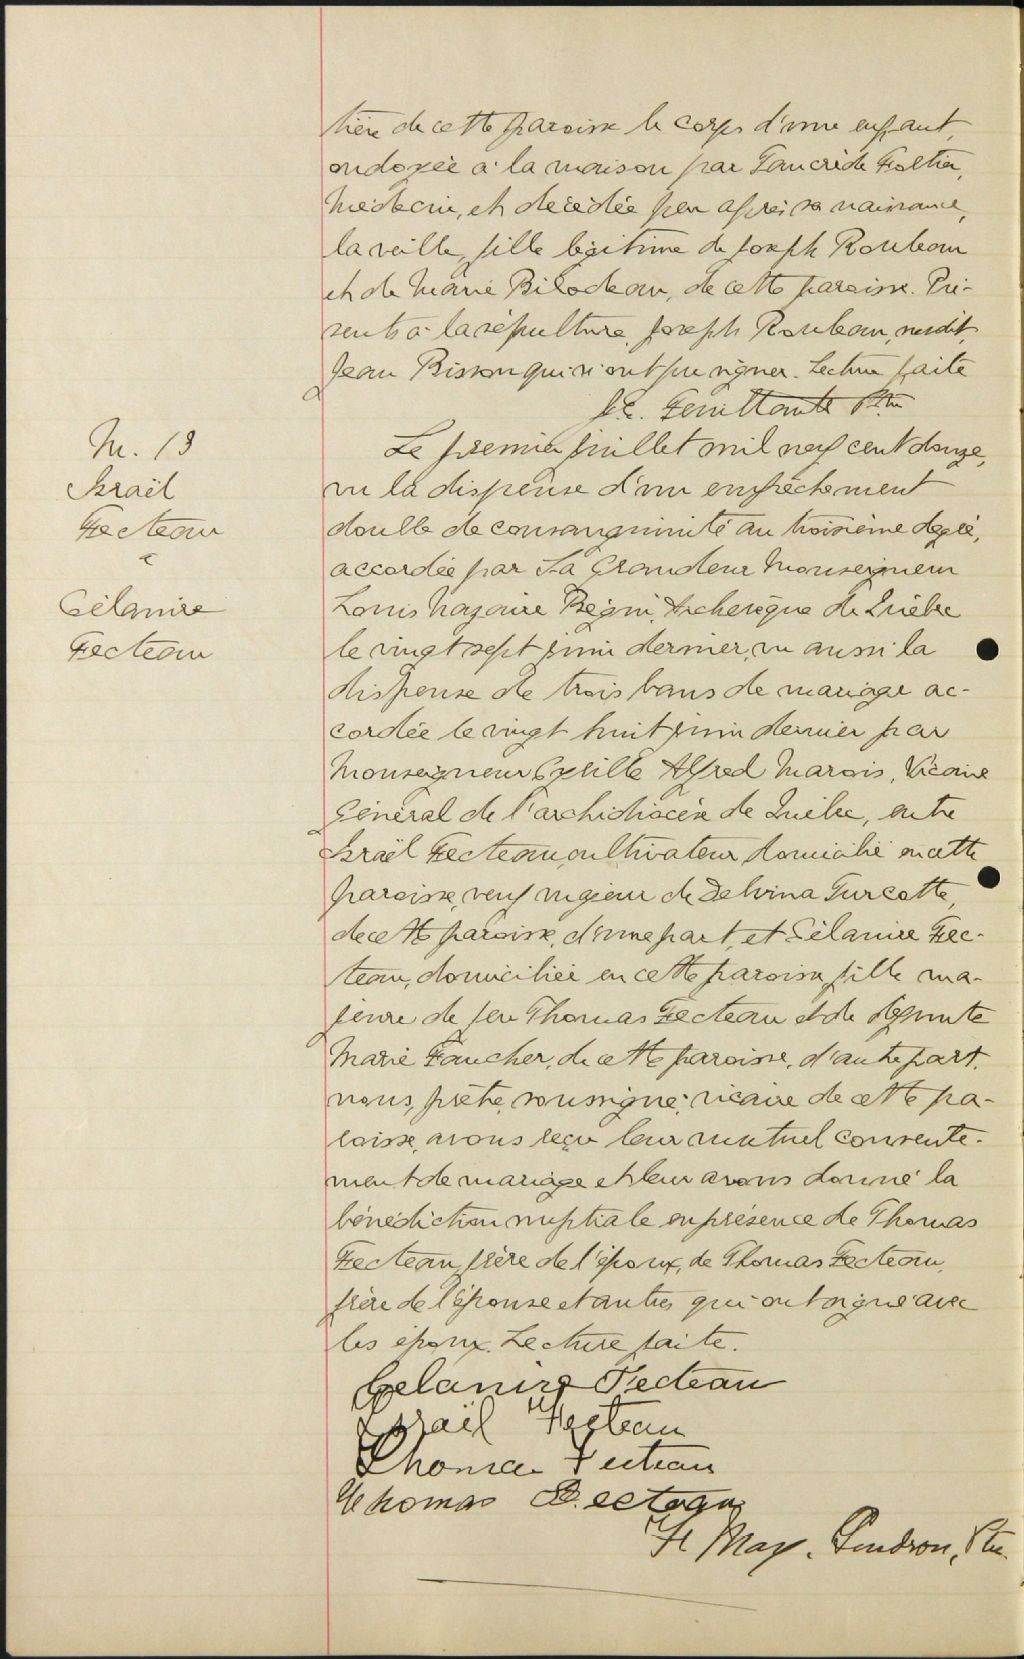 tière de cette paroisse le corps d'une enfant,
ondoyée à la maison par Tancrède Fortier,
Médecin, et décédée peu après sa naissance,
la veille, fille légitime de Joseph Rouleau
et de Marie Bilodeau, de cette paroisse. Pré-
sents à la sépulture, Joseph Rouleau, susdit,
Jean Bisson qui n'ont pu signer. Lecture faite
J.E. Feuiltault Ptre
M. 13
Israël
Fecteau
&
Célanire
Fecteau
Le premier juillet mil neuf cent douze,
vu la dispense d'un empêchement
double de consanguinité au troisième degré,
accordée par Sa Grandeur Monseigneur
Louis Nazaire Bégin, Archevêque de Québec
le vingt sept juin dernier, vu aussi la
dispense de trois bans de mariage ac-
cordée le vingt huit juin dernier par
Monseigneur Cyrille Alfred Marois, Vicaire
Général de l'archidiocèse de Québec, entre
Israël Fecteau, cultivateur, domicilié en cette
paroisse, veuf majeur de Delvina Turcotte,
de cette paroisse, d'une part, et Célanire Fec-
teau, domiciliée en cette paroisse, fille ma-
jeure de feu Thomas Fecteau et de défunte
Marie Faucher, de cette paroisse, d'autre part,
nous, prêtre, soussigné, vicaire de cette pa-
roisse, avons reçu leur mutuel consente-
ment de mariage et leur avons donné la
bénédiction nuptiale en présence de Thomas
Fecteau, frère de l'époux, de Thomas Fecteau,
frère de l'épouse et autres qui ont signé avec
les époux. Lecture faite.
Celanire Fecteau
Israël Fecteau
Thomas Fecteau
Thomas Fecteau
Max. Gendron, Ptre.